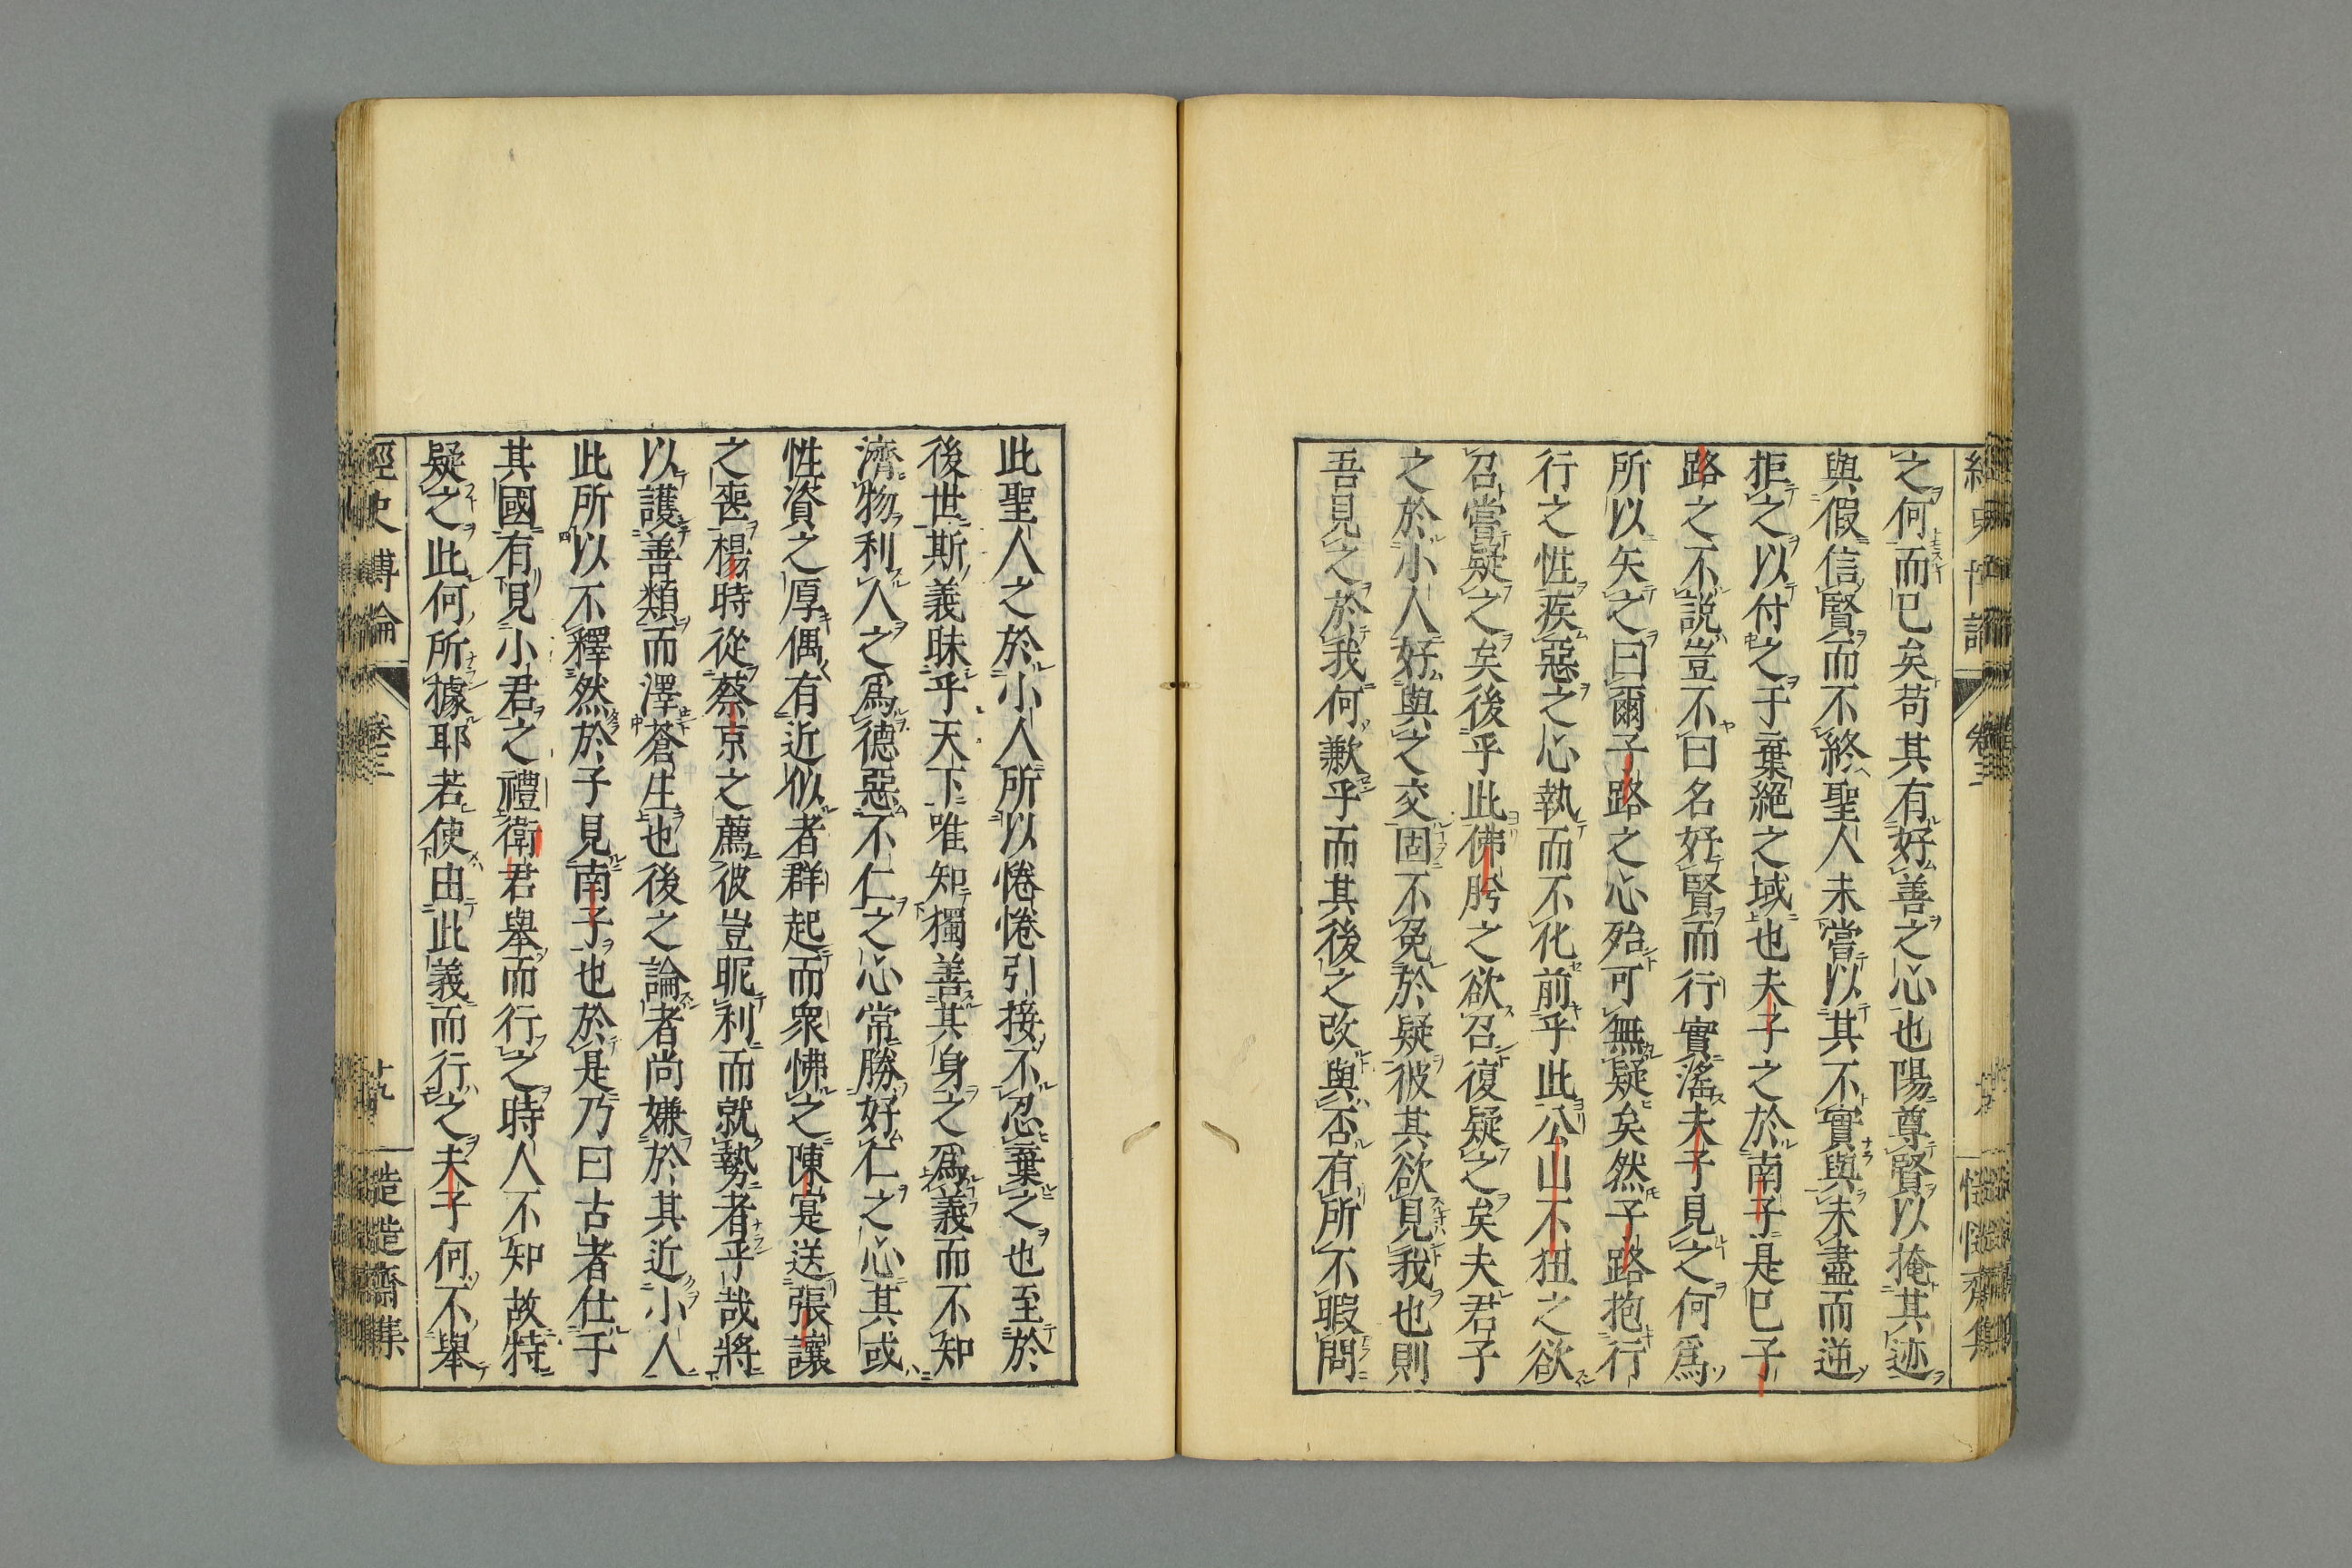 之何而已矣苟其有好善之心也陽尊賢以掩其迹
與假信賢而不終聖人未嘗以其不實與未盡而逆
拒之以付之于棄絶之域也夫子之於南子是已子
路之不説豈不曰名好賢而行實滛夫子見之何爲
所以矢之曰爾子路之心殆可無疑矣然子路抱行
行之性疾惡之心執而不化前乎此公山不狃之欲
召嘗疑之矣後乎此佛肸之欲召復疑之矣夫君子
之於小人好與之交固不免於疑彼其欲見我也則
吾見之於我何歉乎而其後之改與否有所不暇問
此聖人之於小人所以惓惓引接不忍棄之也至於
後世斯義昧乎天下唯知獨善其身之爲義而不知
濟物利人之爲德惡不仁之心常勝好仁之心其或
性資之厚偶有近似者群起而衆怫之陳寔送張讓
之喪楊時從蔡京之薦彼豈昵利而就勢者乎哉將
以護善類而澤蒼生也後之論者尚嫌於其近小人
此所以不釋然於子見南子也於是乃曰古者仕于
其國有見小君之禮衛君舉而行之時人不知故特
疑之此何所據耶若使由此義而行之夫子何不舉
經史博論 卷三 造造齋集